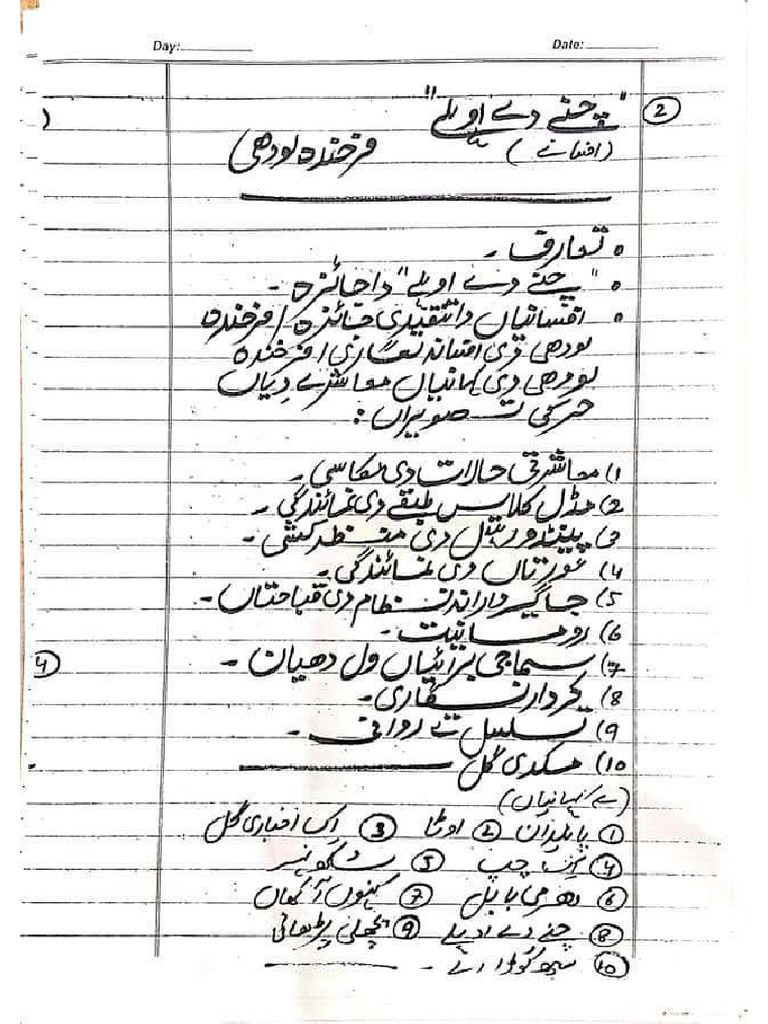 Day: Date:
② "چنے دے اوہلے"
(افسانے) فرخندہ لودھی
• تعارف ۔
• "چنے دے اوہلے" دا جائزہ ۔
• افسانیاں دا تنقیدی جائزہ / فرخندہ
لودھی دی افسانہ نگاری / فرخندہ
لودھی دی کہانیاں معاشرے دیاں
تصویراں :
1) معاشرتی حالات دی عکاسی ۔
2) مڈل کلاس طبقے دی نمائندگی ۔
3) پینڈو رہتل دی منظر کشی ۔
4) عورتاں دی نمائندگی ۔
5) جاگیردارانہ نظام دی قباحتاں ۔
6) رومانیت ۔
7) سماجی برائیاں ول دھیان ۔
8) کردار نگاری ۔
9) تسلسل تے روانی ۔
10) مکدی گل
(کہانیاں)
① ② اوٹا ③ اک اخباری گل
④ چپ ⑤
⑥ دھرمی بابل ⑦ کہنوں آکھاں
⑧ چنے دے اوہلے ⑨ پچھلی پڑھائی
⑩
④